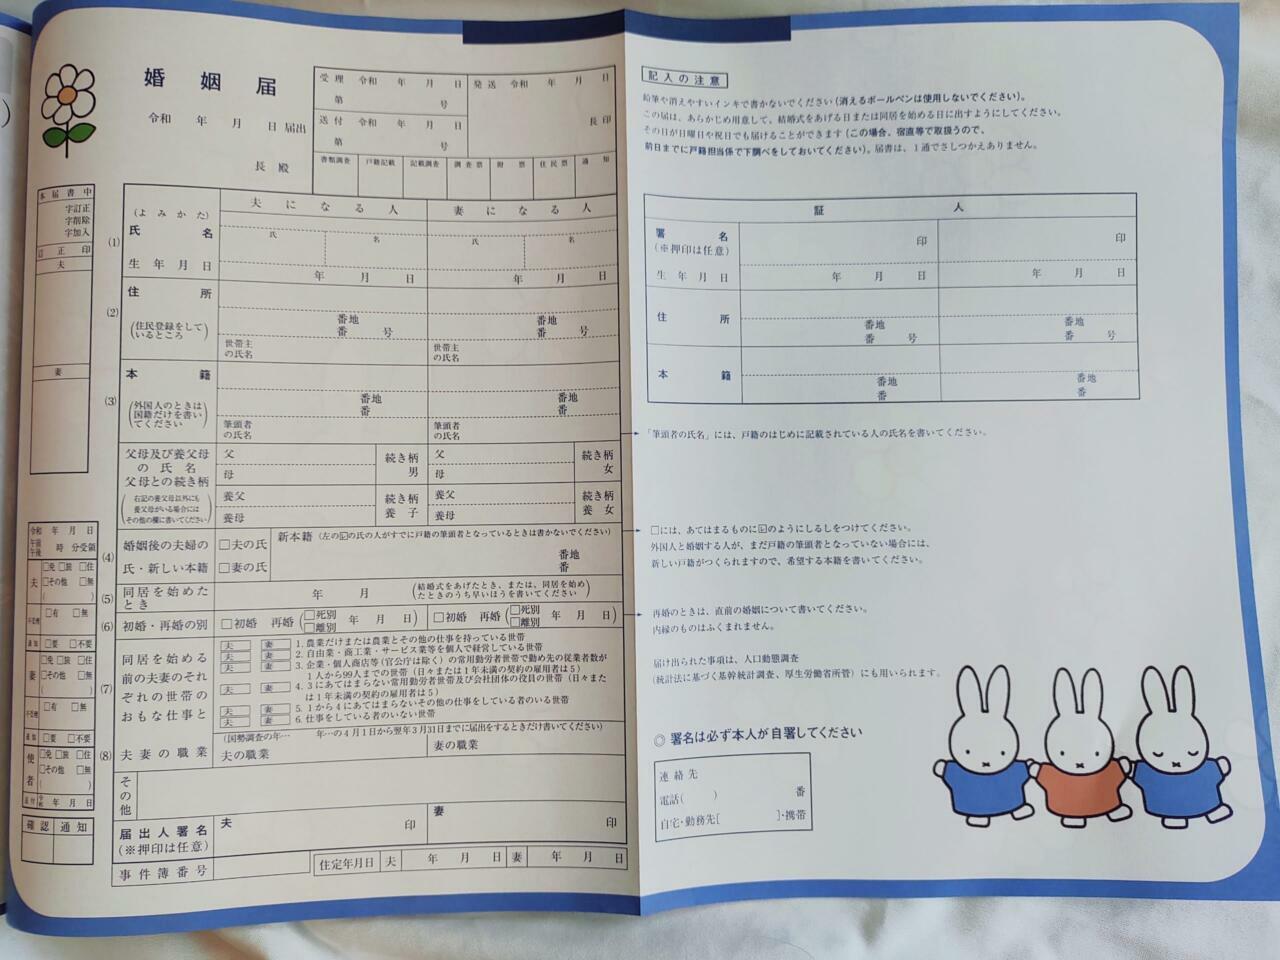 婚姻届
令和 年 月 日 届出
長 殿
受理 令和 年 月 日
第 号
送付 令和 年 月 日
第 号
発送 令和 年 月 日
長印
書類調査 戸籍記載 記載調査 調査票 附票 住民票 通知
本届書中
字訂正
字削除
字加入
訂正印
夫
妻
夫になる人 妻になる人
(1)
(よみかた)
氏名
氏 名 氏 名
生年月日 年 月 日 年 月 日
(2)
住所
(住民登録をしているところ)
番地 番地
番 号 番 号
世帯主の氏名 世帯主の氏名
(3)
本籍
(外国人のときは国籍だけを書いてください)
番地 番地
番 番
筆頭者の氏名 筆頭者の氏名
父母及び養父母の氏名
父母との続き柄
(右記の養父母以外にも養父母がいる場合にはその他の欄に書いてください)
父 続き柄 父 続き柄
母 男 母 女
養父 続き柄 養父 続き柄
養母 養子 養母 養女
(4)
婚姻後の夫婦の氏・新しい本籍
□夫の氏
□妻の氏
新本籍(左の☑の氏の人がすでに戸籍の筆頭者となっているときは書かないでください)
番地
番
(5)
同居を始めたとき
年 月
(結婚式をあげたとき、または、同居を始めたときのうち早いほうを書いてください)
(6)
初婚・再婚の別
□初婚 再婚(□死別 □離別 年 月 日)
□初婚 再婚(□死別 □離別 年 月 日)
(7)
同居を始める前の夫妻のそれぞれの世帯のおもな仕事と
夫 妻 1. 農業だけまたは農業とその他の仕事を持っている世帯
夫 妻 2. 自由業・商工業・サービス業等を個人で経営している世帯
夫 妻 3. 企業・個人商店等(官公庁は除く)の常用勤労者世帯で勤め先の従業者数が
1人から99人までの世帯(日々または1年未満の契約の雇用者は5)
夫 妻 4. 3にあてはまらない常用勤労者世帯及び会社団体の役員の世帯(日々また
は1年未満の契約の雇用者は5)
夫 妻 5. 1から4にあてはまらないその他の仕事をしている者のいる世帯
夫 妻 6. 仕事をしている者のいない世帯
(8)
夫妻の職業
(国勢調査の年…　年…の4月1日から翌年3月31日までに届出をするときだけ書いてください)
夫の職業 妻の職業
その他
届出人署名
(※押印は任意)
夫 印 妻 印
事件簿番号
住定年月日 夫 年 月 日 妻 年 月 日
令和 年 月 日
午前
午後 時 分受領
夫
□免 □旅 □住
□その他 □無
( )
□有 □無
通知 □要 □不要
妻
□免 □旅 □住
□その他 □無
( )
□有 □無
通知 □要 □不要
使者
□免 □旅 □住
□その他 □無
( )
送付 令和 年 月 日
確認 通知
記入の注意
鉛筆や消えやすいインキで書かないでください(消えるボールペンは使用しないでください)。
この届は、あらかじめ用意して、結婚式をあげる日または同居を始める日に出すようにしてください。
その日が日曜日や祝日でも届けることができます(この場合、宿直等で取扱うので、
前日までに戸籍担当係で下調べをしておいてください)。届書は、1通でさしつかえありません。
証人
署名
(※押印は任意)
印 印
生年月日 年 月 日 年 月 日
住所
番地 番地
番 号 番 号
本籍
番地 番地
番 番
「筆頭者の氏名」には、戸籍のはじめに記載されている人の氏名を書いてください。
□には、あてはまるものに☑のようにしるしをつけてください。
外国人と婚姻する人が、まだ戸籍の筆頭者となっていない場合には、
新しい戸籍がつくられますので、希望する本籍を書いてください。
再婚のときは、直前の婚姻について書いてください。
内縁のものはふくまれません。
届け出られた事項は、人口動態調査
(統計法に基づく基幹統計調査、厚生労働省所管)にも用いられます。
◎ 署名は必ず本人が自署してください
連絡先
電話( ) 番
自宅・勤務先[ ]・携帯